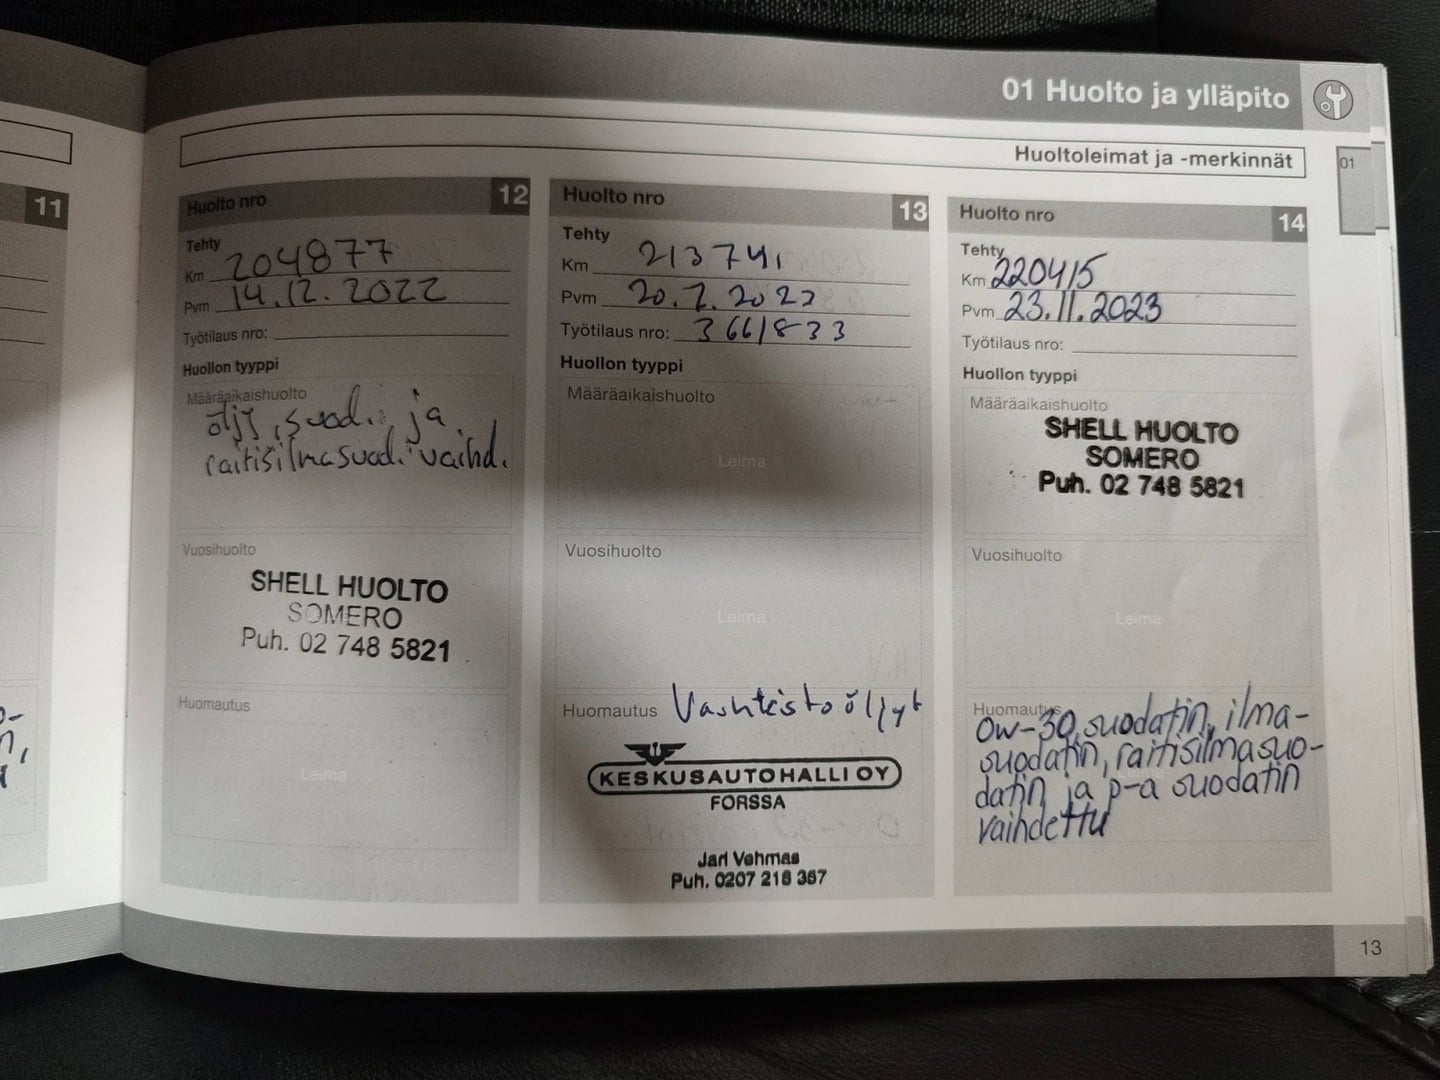 01 Huolto ja ylläpito
Huoltoleimat ja -merkinnät
01
11
Huolto nro 12
Tehty
Km 204877
Pvm 14.12.2022
Työtilaus nro:
Huollon tyyppi
Määräaikaishuolto
öljy, suod. ja
raitisilmasuod. vaihd.
Vuosihuolto
SHELL HUOLTO
SOMERO
Puh. 02 748 5821
Huomautus
Leima
Huolto nro 13
Tehty
Km 213741
Pvm
Työtilaus nro: 3661833
Huollon tyyppi
Määräaikaishuolto
Leima
Vuosihuolto
Leima
Huomautus Vaihteistoöljyt
KESKUSAUTOHALLI OY
FORSSA
Jari Vehmas
Puh. 0207 218 367
Huolto nro 14
Tehty
Km 220415
Pvm 23.11.2023
Työtilaus nro:
Huollon tyyppi
Määräaikaishuolto
SHELL HUOLTO
SOMERO
Puh. 02 748 5821
Vuosihuolto
Leima
Huomautus
0w-30, suodatin, ilma-
suodatin, raitisilmasuo-
datin ja p-a suodatin
vaihdettu
13